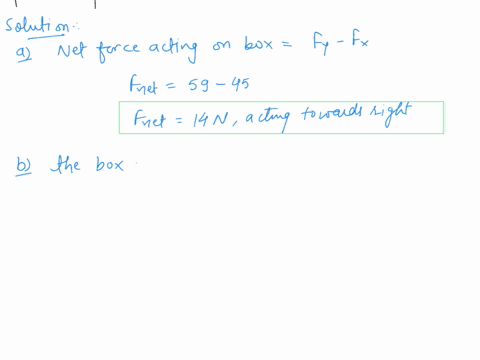 Solution:-
a) Net force acting on box = Fy - Fx
Fnet = 59 - 45
Fnet = 14 N, acting towards right
b) the box